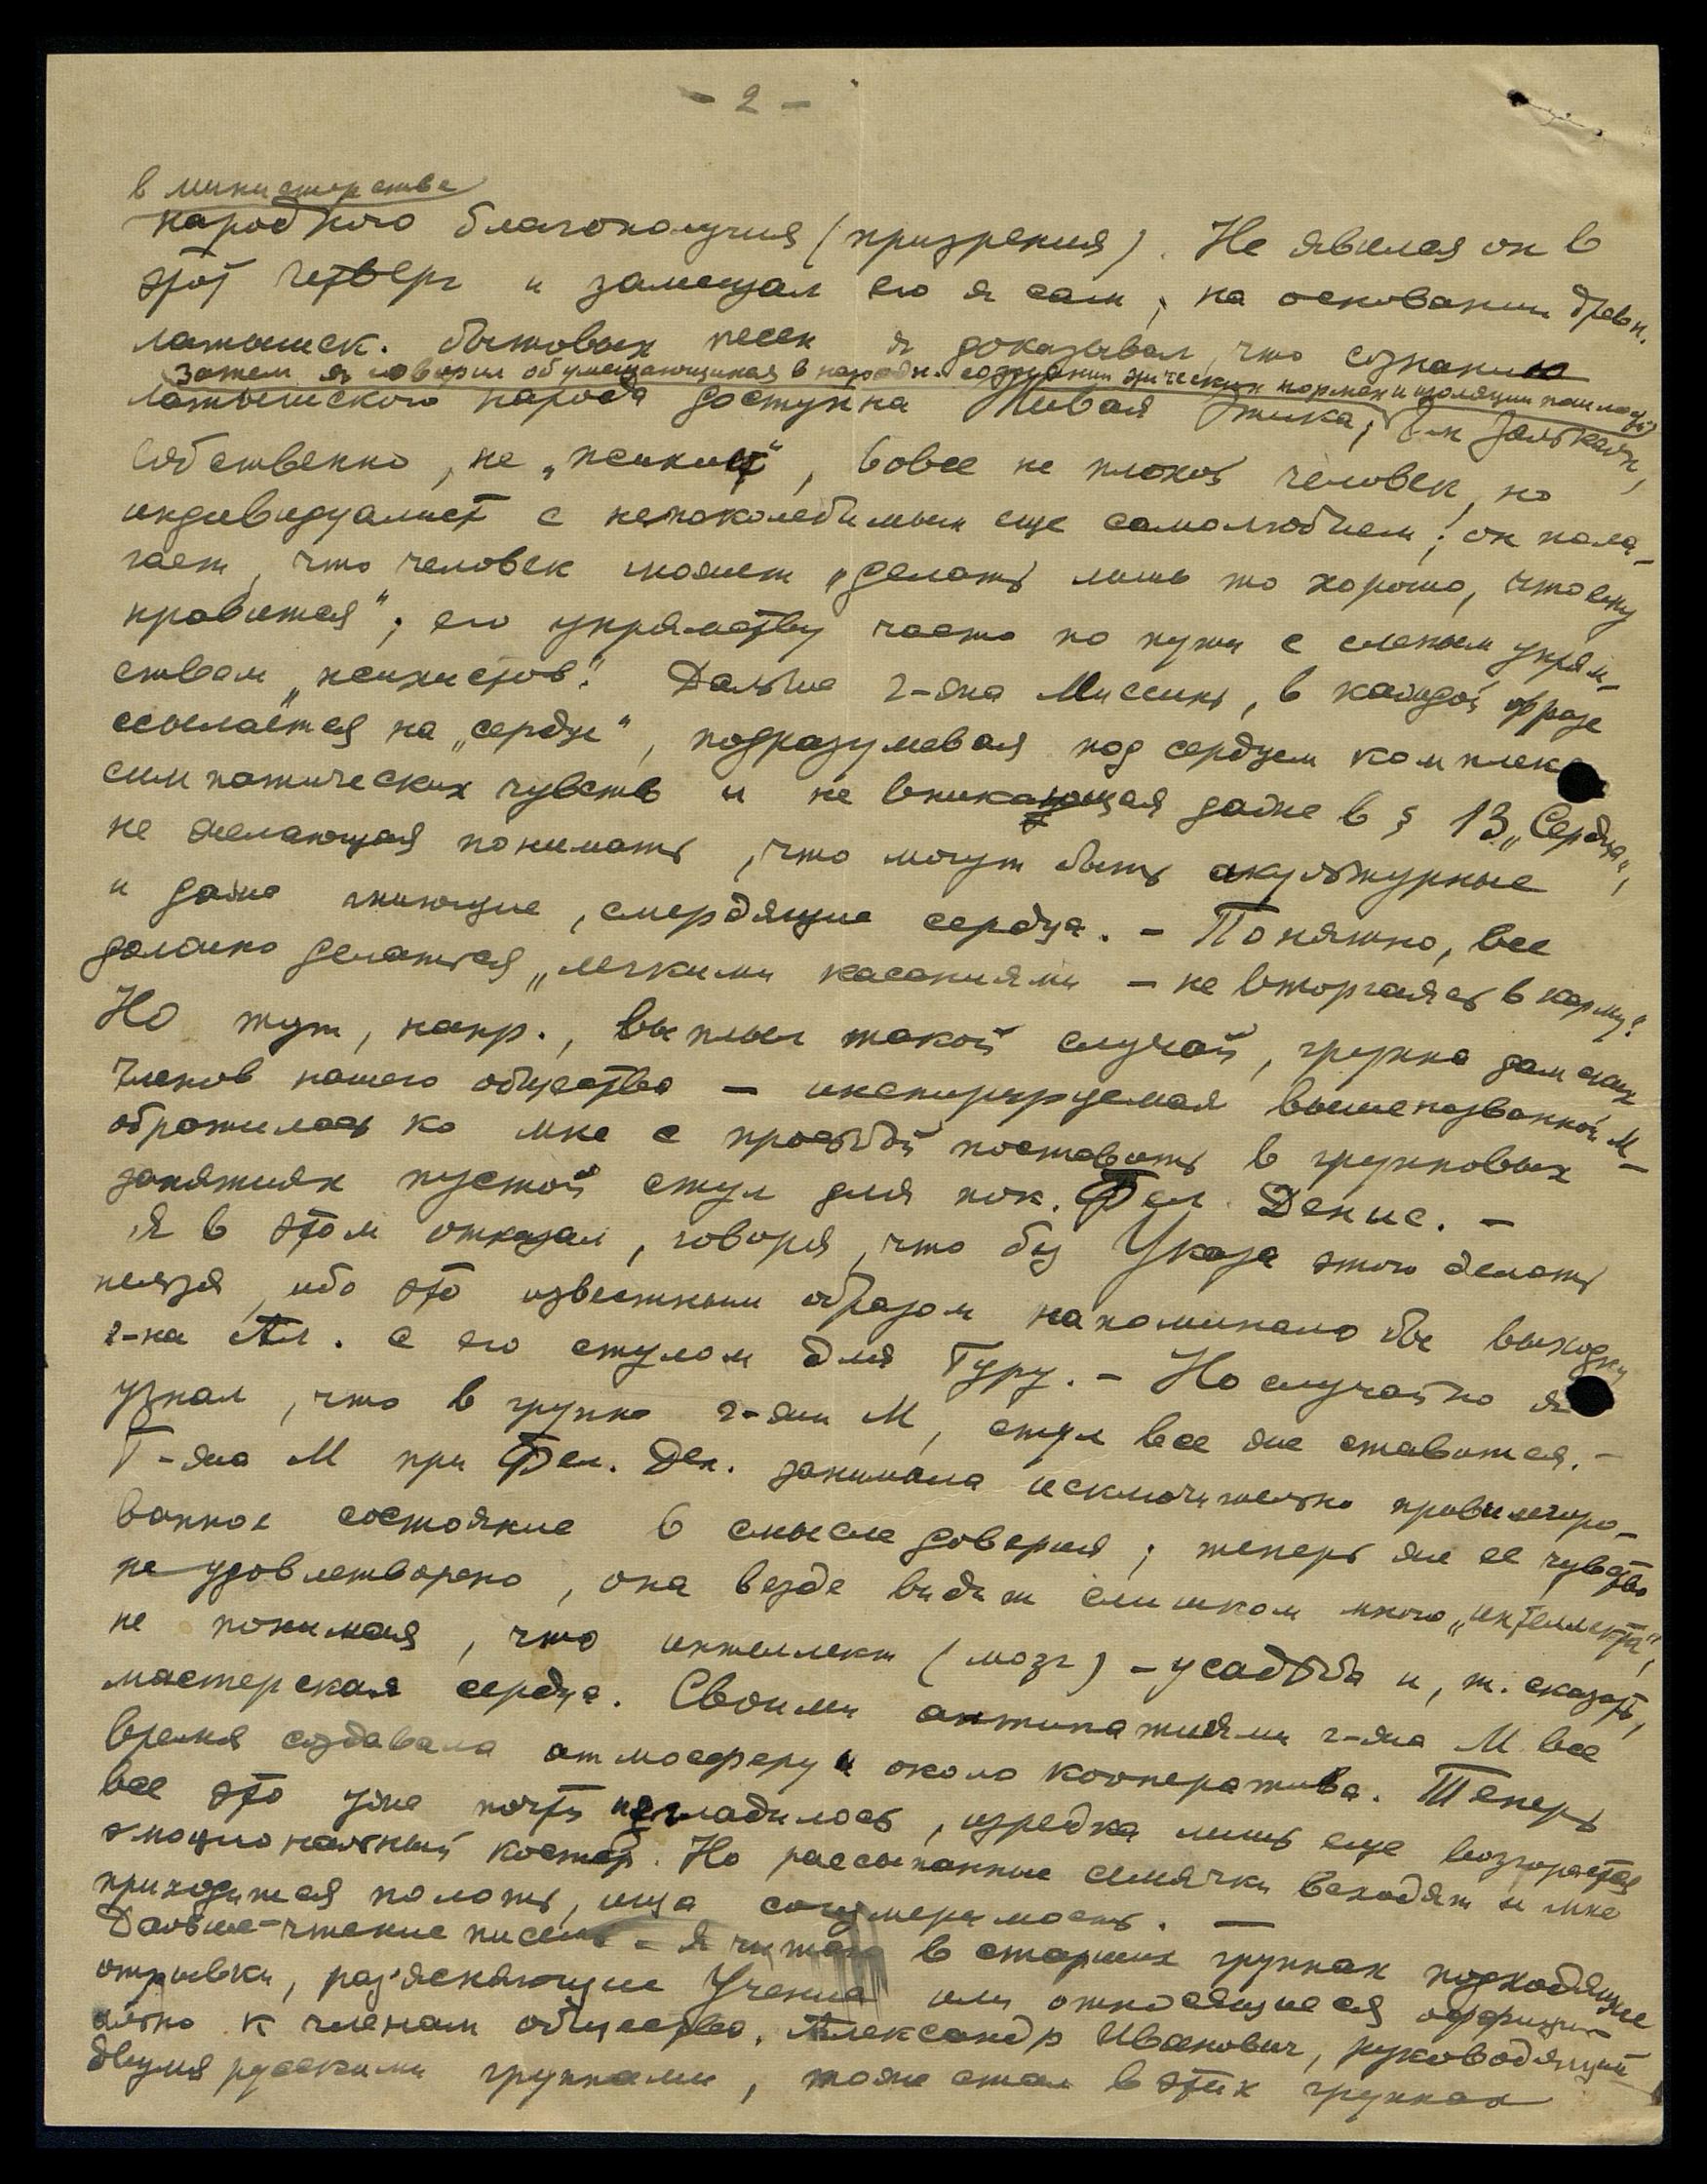 - 2 -
в министерстве
народного благополучия (призрения). Не явился он в
этот четверг и замещал его я сам; на основании древн.
латышск. бытовых песен я доказывал, что сознанию
затем я говорил об умещающихся в народн. сознании этических нормах и
латышского народа доступна Живая Этика; Ян Залькалн,
собственно, не „психист“, вовсе не плохой человек, но
индивидуалист с непоколебимым еще самолюбием; он пола-
гает, что человек может „делать лишь то хорошо, что ему
нравится“; его упрямству часто по пути с слепым упрям-
ством „психистов“. Дальше г-жа Миссинь, в каждой фразе
ссылается на „сердце“, подразумевая под сердцем комплекс
симпатических чувств и не вникающая даже в § 13 „Сердца“,
не желающая понимать, что могут быть акультурные
и даже гниющие, смердящие сердца. - Понятно, все
должно делаться „легкими касаниями - не вторгаясь в карму“.
Но тут, напр., выплыл такой случай, группа дамских
членов нашего общества — инспирируемая вышеназванной М -
обратилась ко мне с просьбой поставить в групповых
занятиях пустой стул для пок. Фел. Денис. -
Я в этом отказал, говоря, что без Указа этого делать
нельзя, ибо это известным образом напоминало бы выходку
г-на Ал. с его стулом для Гуру. - Но случайно я
узнал, что в группе г-жи М, стул все же ставится. -
Г-жа М при Фел. Ден. занимала исключительно привилегиро-
ванное состояние в смысле доверия; теперь же ее чувство
не удовлетворено, она везде видит слишком много „интеллекта“,
не понимая, что интеллект (мозг) - усадьба и, т. сказать,
мастерская сердца. Своими антипатиями г-жа М все
время создавала атмосферу и около кооператива. Теперь
все это уже почти сгладилось, изредка лишь еще возгорается
эмоциональный костер. Но рассыпанные семячки всходят и мне
приходится полоть, ища соизмеримость. —
Дальше - чтение писем - я читаю в старших группах подходящие
отрывки, раз'ясняющие Учение или относящиеся оффици-
ально к членам общества. Александр Иванович, руководящий
двумя русскими группами, тоже стал в этих группах